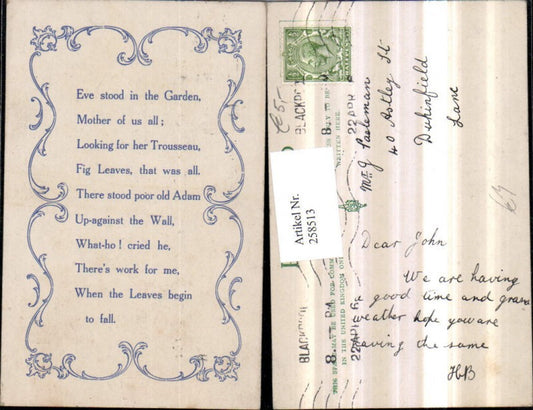 Eve stood in the Garden,
Mother of us all ;
Looking for her Trousseau,
Fig Leaves, that was all.
There stood poor old Adam
Up-against the Wall,
What-ho ! cried he,
There's work for me,
When the Leaves begin
to fall.
€ 5,-
BLACKPOOL
22 APR
Mr J.
40 Astley St
Dukinfield
Lanc
WRITTEN HERE.
Artikel Nr.
258513
THIS SPACE MAY BE USED FOR COMM
IN THE UNITED KINGDOM ONL
BLACKPOOL
22 APR
69
Dear John
We are having
a good time and grand
weather hope you are
having the same
HB